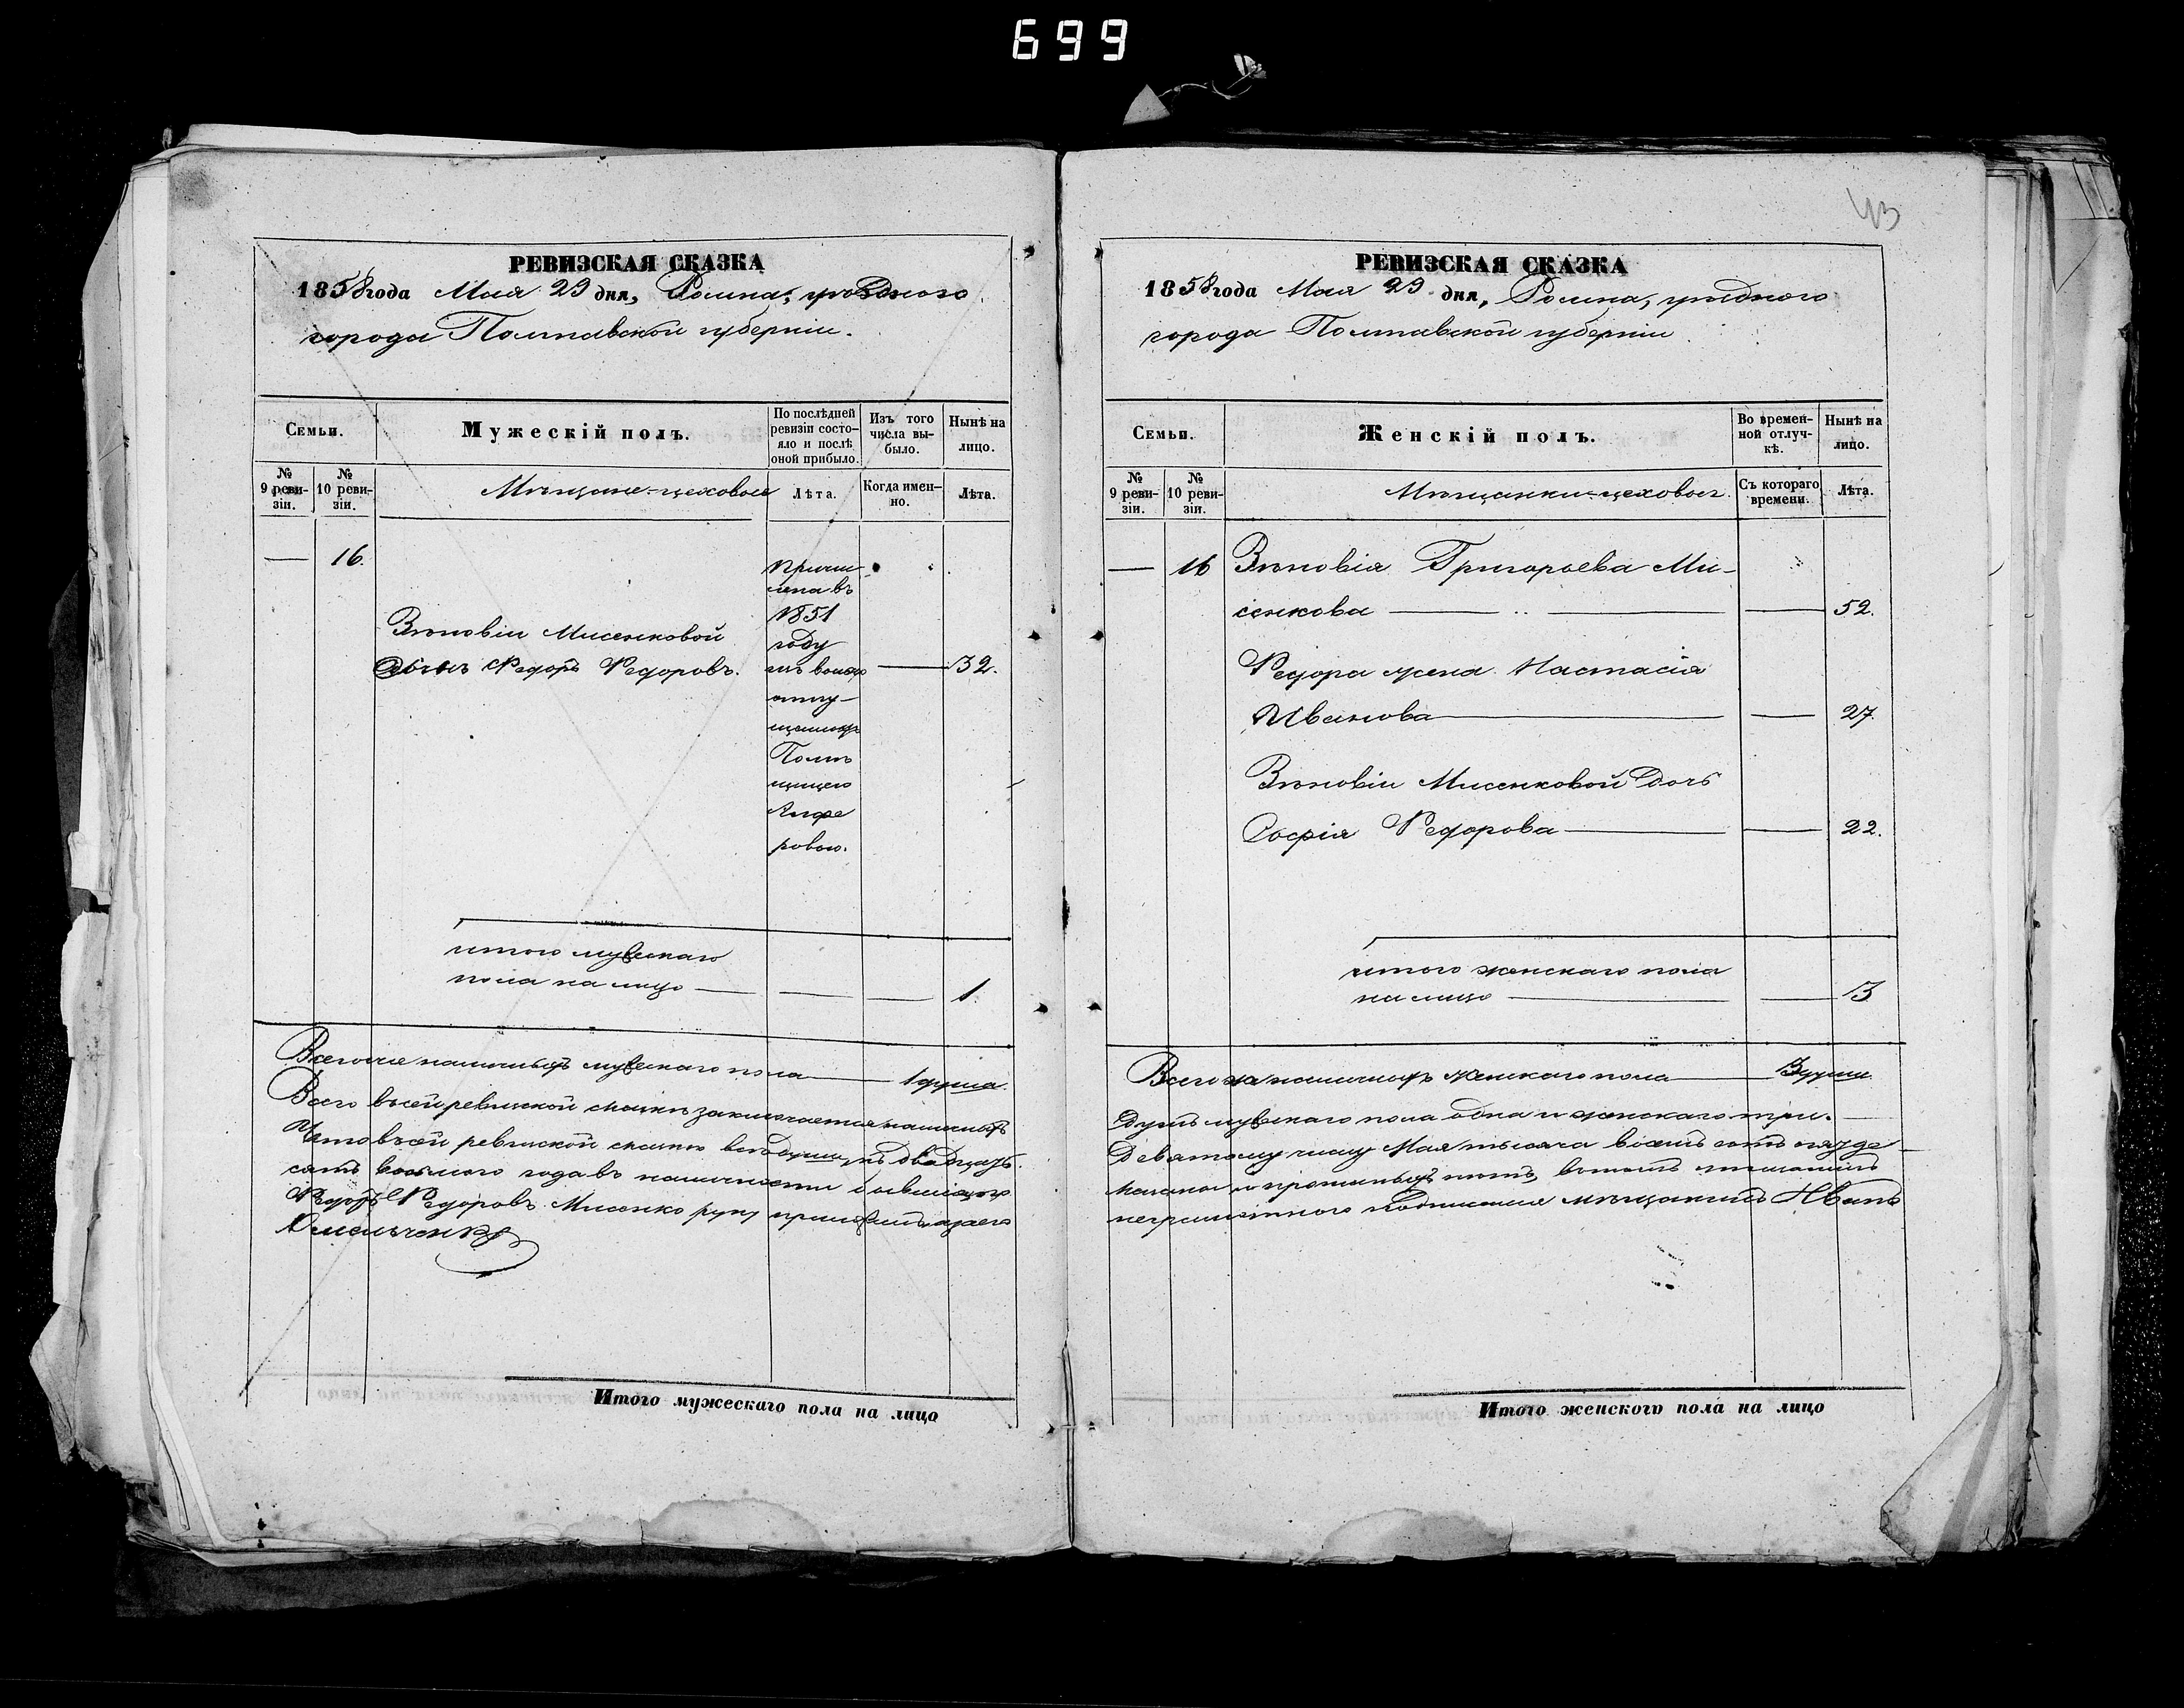 699
43
РЕВИЗСКАЯ СКАЗКА
1858 года Мая 29 дня, Ромна, уѣзднаго
города Полтавской губерніи.
Семьи.
Мужескій полъ.
По послѣдней
ревизіи состо-
яло и послѣ
оной прибыло.
Изъ того
числа вы-
было.
Нынѣ на
лицо.
№
9 реви-
зіи.
№
10 реви-
зіи.
Мѣщане-цеховые
Лѣта.
Когда имен-
но.
Лѣта.
16.
Зѣновіи Мисенковой
сынъ Федоръ Федоровъ. 32.
причи-
слена въ
1851
году
отпу-
Помѣ
щицею
Алфе
ровою.
итого мужескаго
пола на лицо 1.
Всего же наличныхъ мужескаго пола 1 душа.
Всего въ сей ревизской сказкѣ заключается наличныхъ
Что въ сей ревизской сказкѣ всѣ души, къ двадцать
сятъ восьмого года въ наличности
Федоръ Федоровъ Мисенко руку
Омельченко
Итого мужескаго пола на лицо
РЕВИЗСКАЯ СКАЗКА
1858 года Мая 29 дня, Ромна, уѣзднаго
города Полтавской губерніи
Семьи.
Женскій полъ.
Во времен-
ной отлуч-
кѣ.
Нынѣ на
лицо.
№
9 реви-
зіи.
№
10 реви-
зіи.
Мѣщанки-цеховыя.
Съ котораго
времени.
Лѣта.
16 Зѣновія Григорьева Ми-
сенкова 52.
Федора жена Настасія
Иванова 27.
Зѣновіи Мисенковой дочь
Софія Федорова 22.
итого женскаго пола
на лицо 3
Всего же наличныхъ женскаго пола 3 души
Душъ мужескаго пола одна и женскаго три.
Девятому числу Мая тысяча восемь сотъ пятьде
неграмотного мѣщанинъ Иванъ
Итого женского пола на лицо